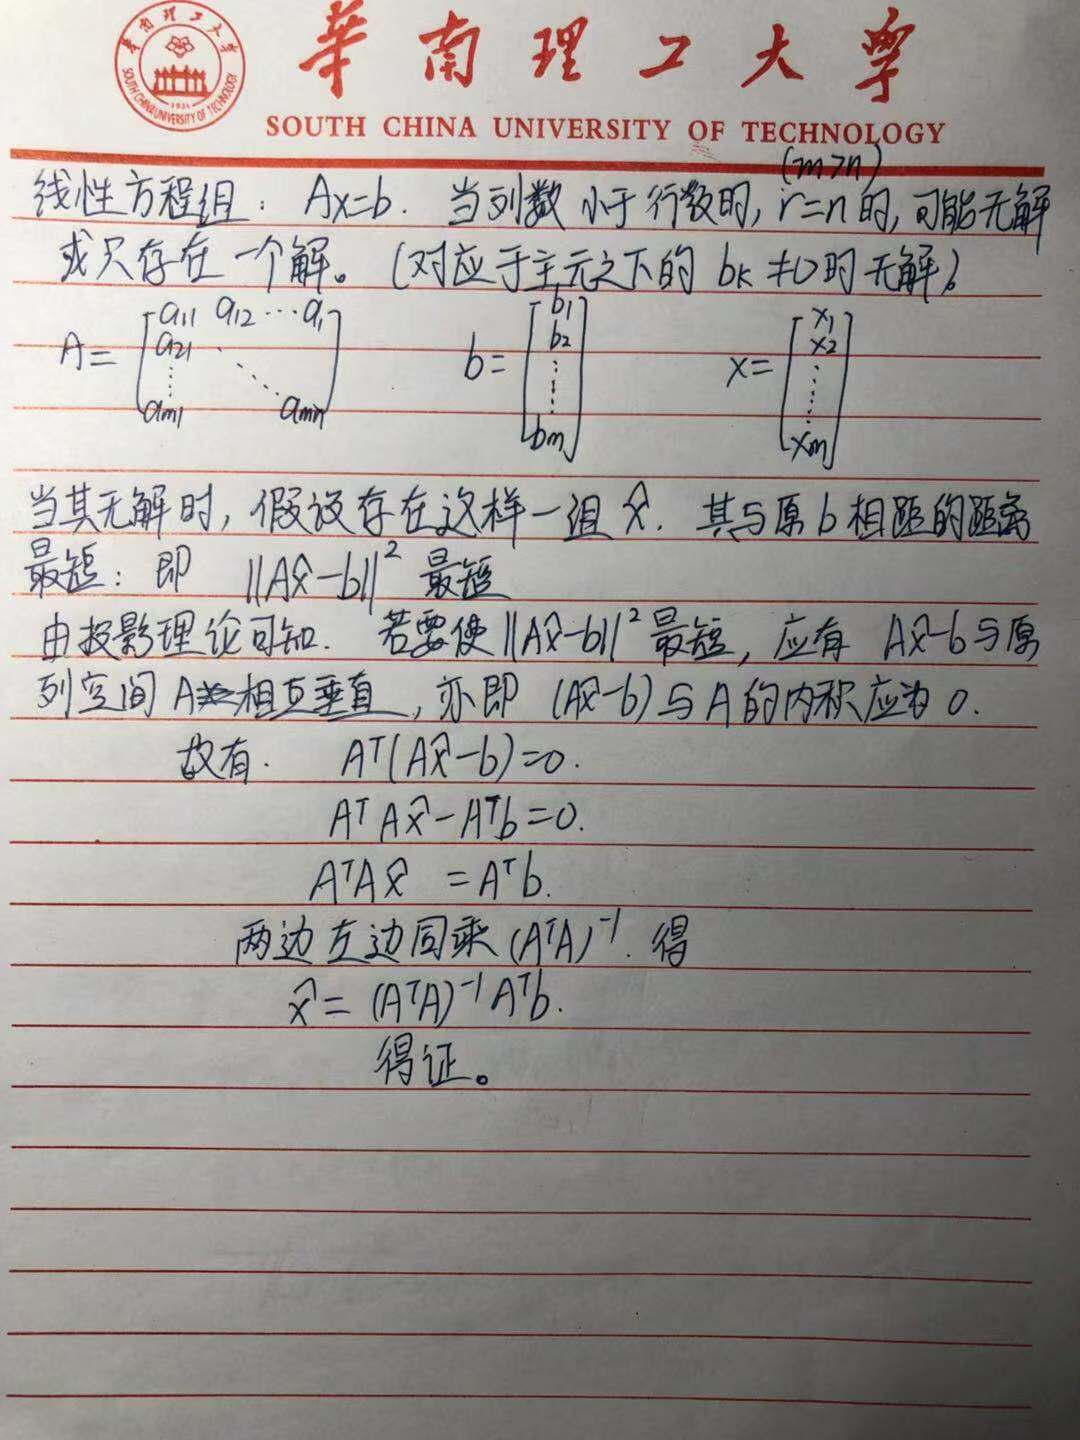 華南理工大學
SOUTH CHINA UNIVERSITY OF TECHNOLOGY
華南理工大学
SOUTH CHINA UNIVERSITY OF TECHNOLOGY
1934
(m>n)
线性方程组: Ax=b. 当列数小于行数时, r=n时, 可能无解
或只存在一个解。(对应于主元之下的 bk≠0时无解)
A= [a11 a12 ⋯ a1
a21 ⋱
⋮
am1 amn]
b= [b1
b2
⋮
bm]
x= [x1
x2
⋮
xm]
当其无解时, 假设存在这样一组 x̂. 其与原 b 相距的距离
最短: 即 ||Ax̂-b||² 最短
由投影理论可知. 若要使 ||Ax̂-b||² 最短, 应有 Ax̂-b与原
列空间 A相互垂直, 亦即 (Ax̂-b) 与 A 的内积应为 0.
故有. Aᵀ(Ax̂-b)=0.
AᵀAx̂-Aᵀb=0.
AᵀAx̂ =Aᵀb.
两边左边同乘 (AᵀA)⁻¹. 得
x̂= (AᵀA)⁻¹Aᵀb.
得证。